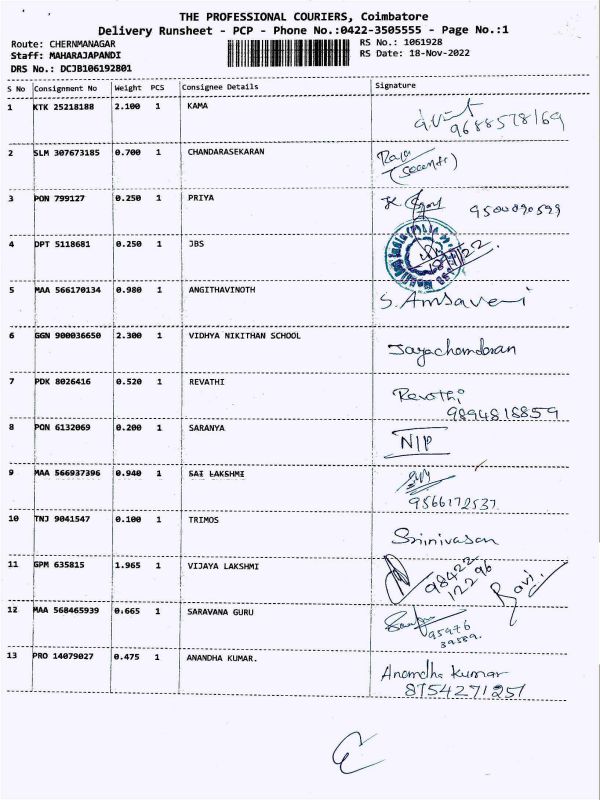 THE PROFESSIONAL COURIERS, Coimbatore
Delivery Runsheet - PCP - Phone No.:0422-3505555 - Page No.:1
Route: CHERNMANAGAR RS No.: 1061928
Staff: MAHARAJAPANDI RS Date: 18-Nov-2022
DRS No.: DCJB106192801
S No Consignment No Weight PCS Consignee Details Signature
1 KTK 25218188 2.100 1 KAMA
9688578169
2 SLM 307673185 0.700 1 CHANDARASEKARAN
Raja
3 PON 799127 0.250 1 PRIYA
9500090599
4 DPT 5118681 0.250 1 JBS
5 MAA 566170134 0.980 1 ANGITHAVINOTH
S. Amsaveni
6 GGN 900036650 2.300 1 VIDHYA NIKITHAN SCHOOL
Jayachandran
7 PDK 8026416 0.520 1 REVATHI
Revathi
9894818859
8 PON 6132069 0.200 1 SARANYA
N/P
9 MAA 566937396 0.940 1 SAI LAKSHMI
9566172537
10 TNJ 9041547 0.100 1 TRIMOS
Srinivasan
11 GPM 635815 1.965 1 VIJAYA LAKSHMI
98422
12296
Ravi.
12 MAA 568465939 0.665 1 SARAVANA GURU
95976
39589.
13 PRO 14079027 0.475 1 ANANDHA KUMAR.
Anandha Kumar
8754271257